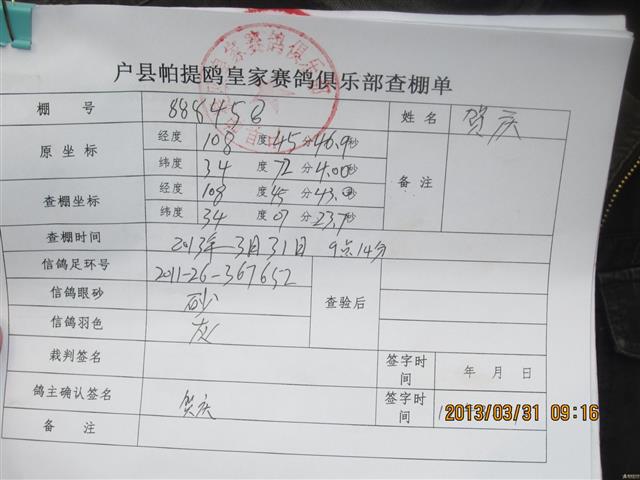 户县帕提鸥皇家赛鸽俱乐部查棚单
棚号 888458 姓名 贺庆
原坐标 经度 108度45分46.9秒 备注
纬度 34度72分4.00秒
查棚坐标 经度 108度45分43.秒
纬度 34度07分23.7秒
查棚时间 2013年3月31日 9点14分
信鸽足环号 2011-26-367652 查验后
信鸽眼砂 砂
信鸽羽色 灰
裁判签名 签字时间 年 月 日
鸽主确认签名 贺庆 签字时间
备注
2013/03/31 09:16